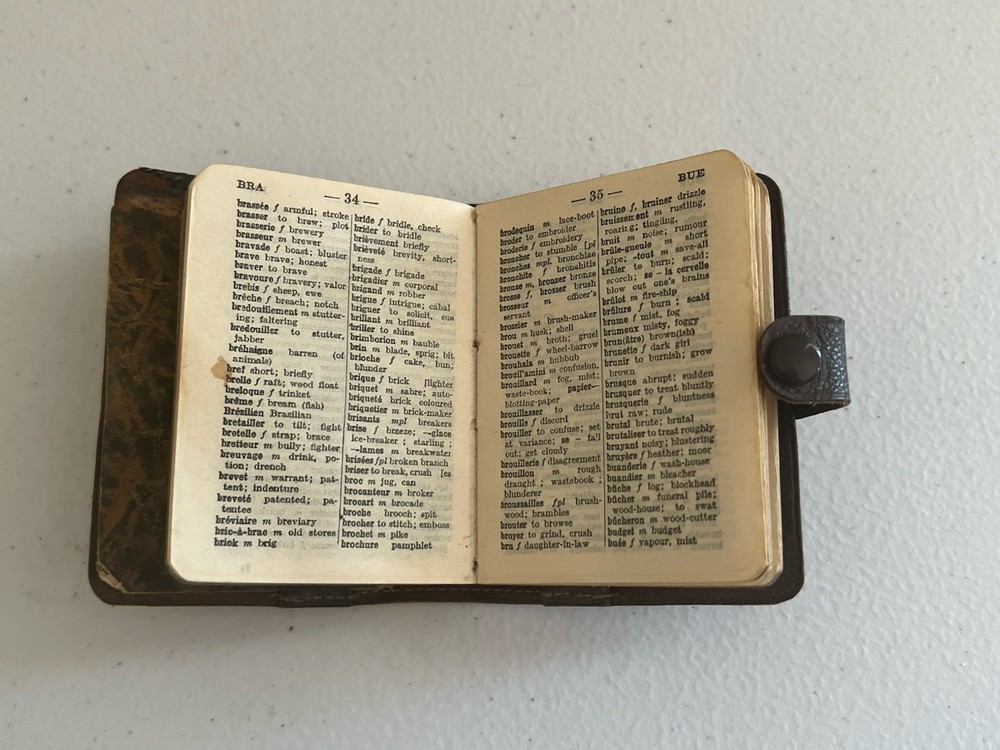 BRA
— 34 —
brassée f armful; stroke
brasser to brew; plot
brasserie f brewery
brasseur m brewer
bravade f boast; bluster
brave brave; honest
braver to brave
bravoure f bravery; valor
brebis f sheep, ewe
brêche f breach; notch
bredouillement m stutter-
ing; faltering
bredouiller to stutter,
jabber
bréhaigne barren (of
animals)
bref short; briefly
brelle f raft; wood float
breloque f trinket
brême f bream (fish)
Brésilien Brazilian
bretailler to tilt; fight
bretelle f strap; brace
bretteur m bully; fighter
breuvage m drink, po-
tion; drench
brevet m warrant; pat-
tent; indenture
breveté patented; pa-
tentee
bréviaire m breviary
bric-à-brac m old stores
brick m brig
bride f bridle, check
brider to bridle
brièvement briefly
brièveté brevity, short-
ness
brigade f brigade
brigadier m corporal
brigand m robber
brigue f intrigue; cabal
briguer to solicit, sue
brillant m brilliant
briller to shine
brimborion m bauble
brin m blade, sprig; bit
brioche f cake, bun;
blunder
brique f brick [lighter
briquet m sabre; auto-
briqueté brick coloured
briquetier m brick-maker
brisants mpl breakers
brise f breeze; —glace
ice-breaker ; starling ;
—lames m breakwater
brisées fpl broken branch
briser to break, crush [es
broc m jug, can
brocanteur m broker
brocart m brocade
broche brooch; spit
brocher to stitch; emboss
brochet m pike
brochure pamphlet
— 35 —
BUE
brodequin m lace-boot
broder to embroider
broderie f embroidery
broncher to stumble [pl
bronches mpl. bronchiae
bronchite f bronchitis
bronze m, bronzer bronze
brosse f, brosser brush
brosseur m officer's
servant
brossier m brush-maker
brou m husk; shell
brouet m broth; gruel
brouette f wheel-barrow
brouhaha m hubbub
brouil'amini m confusion,
brouillard m fog, mist;
waste-book; papier—
blotting-paper
brouillasser to drizzle
brouille f discord
brouiller to confuse; set
at variance; se — fall
out; get cloudy
brouillerie f disagreement
brouillon m rough
draught ; wastebook ;
blunderer
broussailles fpl brush-
wood; brambles
brouter to browse
broyer to grind, crush
bru f daughter-in-law
bruine f, bruiner drizzle
bruissement m rustling,
roaring; tingling,
bruit m noise; rumour
brûle-gueule m short
pipe; -tout m save-all
brûler to burn; scald;
scorch; se — la cervelle
blow out one's brains
brûlot m fire-ship
brûlure f burn ; scald
brume f mist, fog
brumeux misty, foggy
brun(âtre) brown(ish)
brunette f dark girl
brunir to burnish; grow
brown
brusque abrupt; sudden
brusquer to treat bluntly
brusquerie f bluntness
brut raw; rude
brutal brute; brutal
brutaliser to treat roughly
bruyant noisy; blustering
bruyère f heather; moor
buanderie f wash-house
buandier m bleacher
bûche f log; blockhead
bûcher m funeral pile;
wood-house; to swat
bûcheron m wood-cutter
budget m budget
buée f vapour, mist